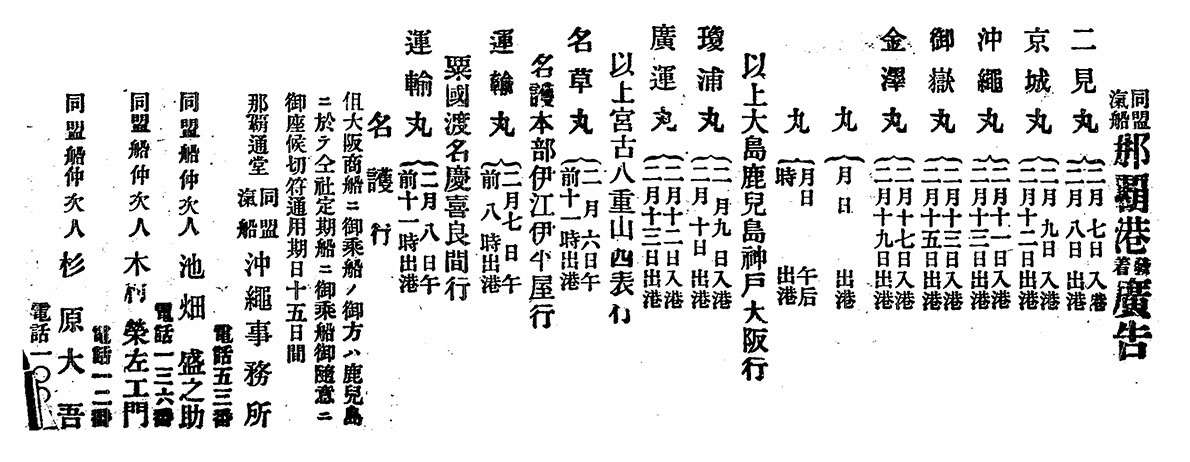 同盟汽船 那覇港發着廣告
二見丸 二月七日入港 二月八日出港
京城丸 二月九日入港 二月十二日出港
沖繩丸 二月十一日入港 二月十三日出港
御嶽丸 二月十三日入港 二月十五日出港
金澤丸 二月十七日入港 二月十九日出港
丸 月日 出港
丸 月日 時 午后出港
以上大島鹿兒島神戸大阪行
瓊浦丸 二月九日入港 二月十日出港
廣運丸 二月十二日入港 二月十三日出港
以上宮古八重山西表行
名草丸 二月六日午前十一時出港
名護本部伊江伊平屋行
運輸丸 二月七日午前八時出港
粟國渡名慶喜良間行
運輸丸 二月八日午前十一時出港
名護行
但大阪商船ニ御乘船ノ御方ハ鹿兒島
ニ於テ仝社定期船ニ御乘船御隨意ニ
御座候切符通用期日十五日間
那覇通堂 同盟汽船 沖繩事務所
電話五三番
同盟船仲次人 池畑盛之助
電話一三六番
同盟船仲次人 木村榮左工門
電話一二番
同盟船仲次人 杉原大吾
電話一〇〇